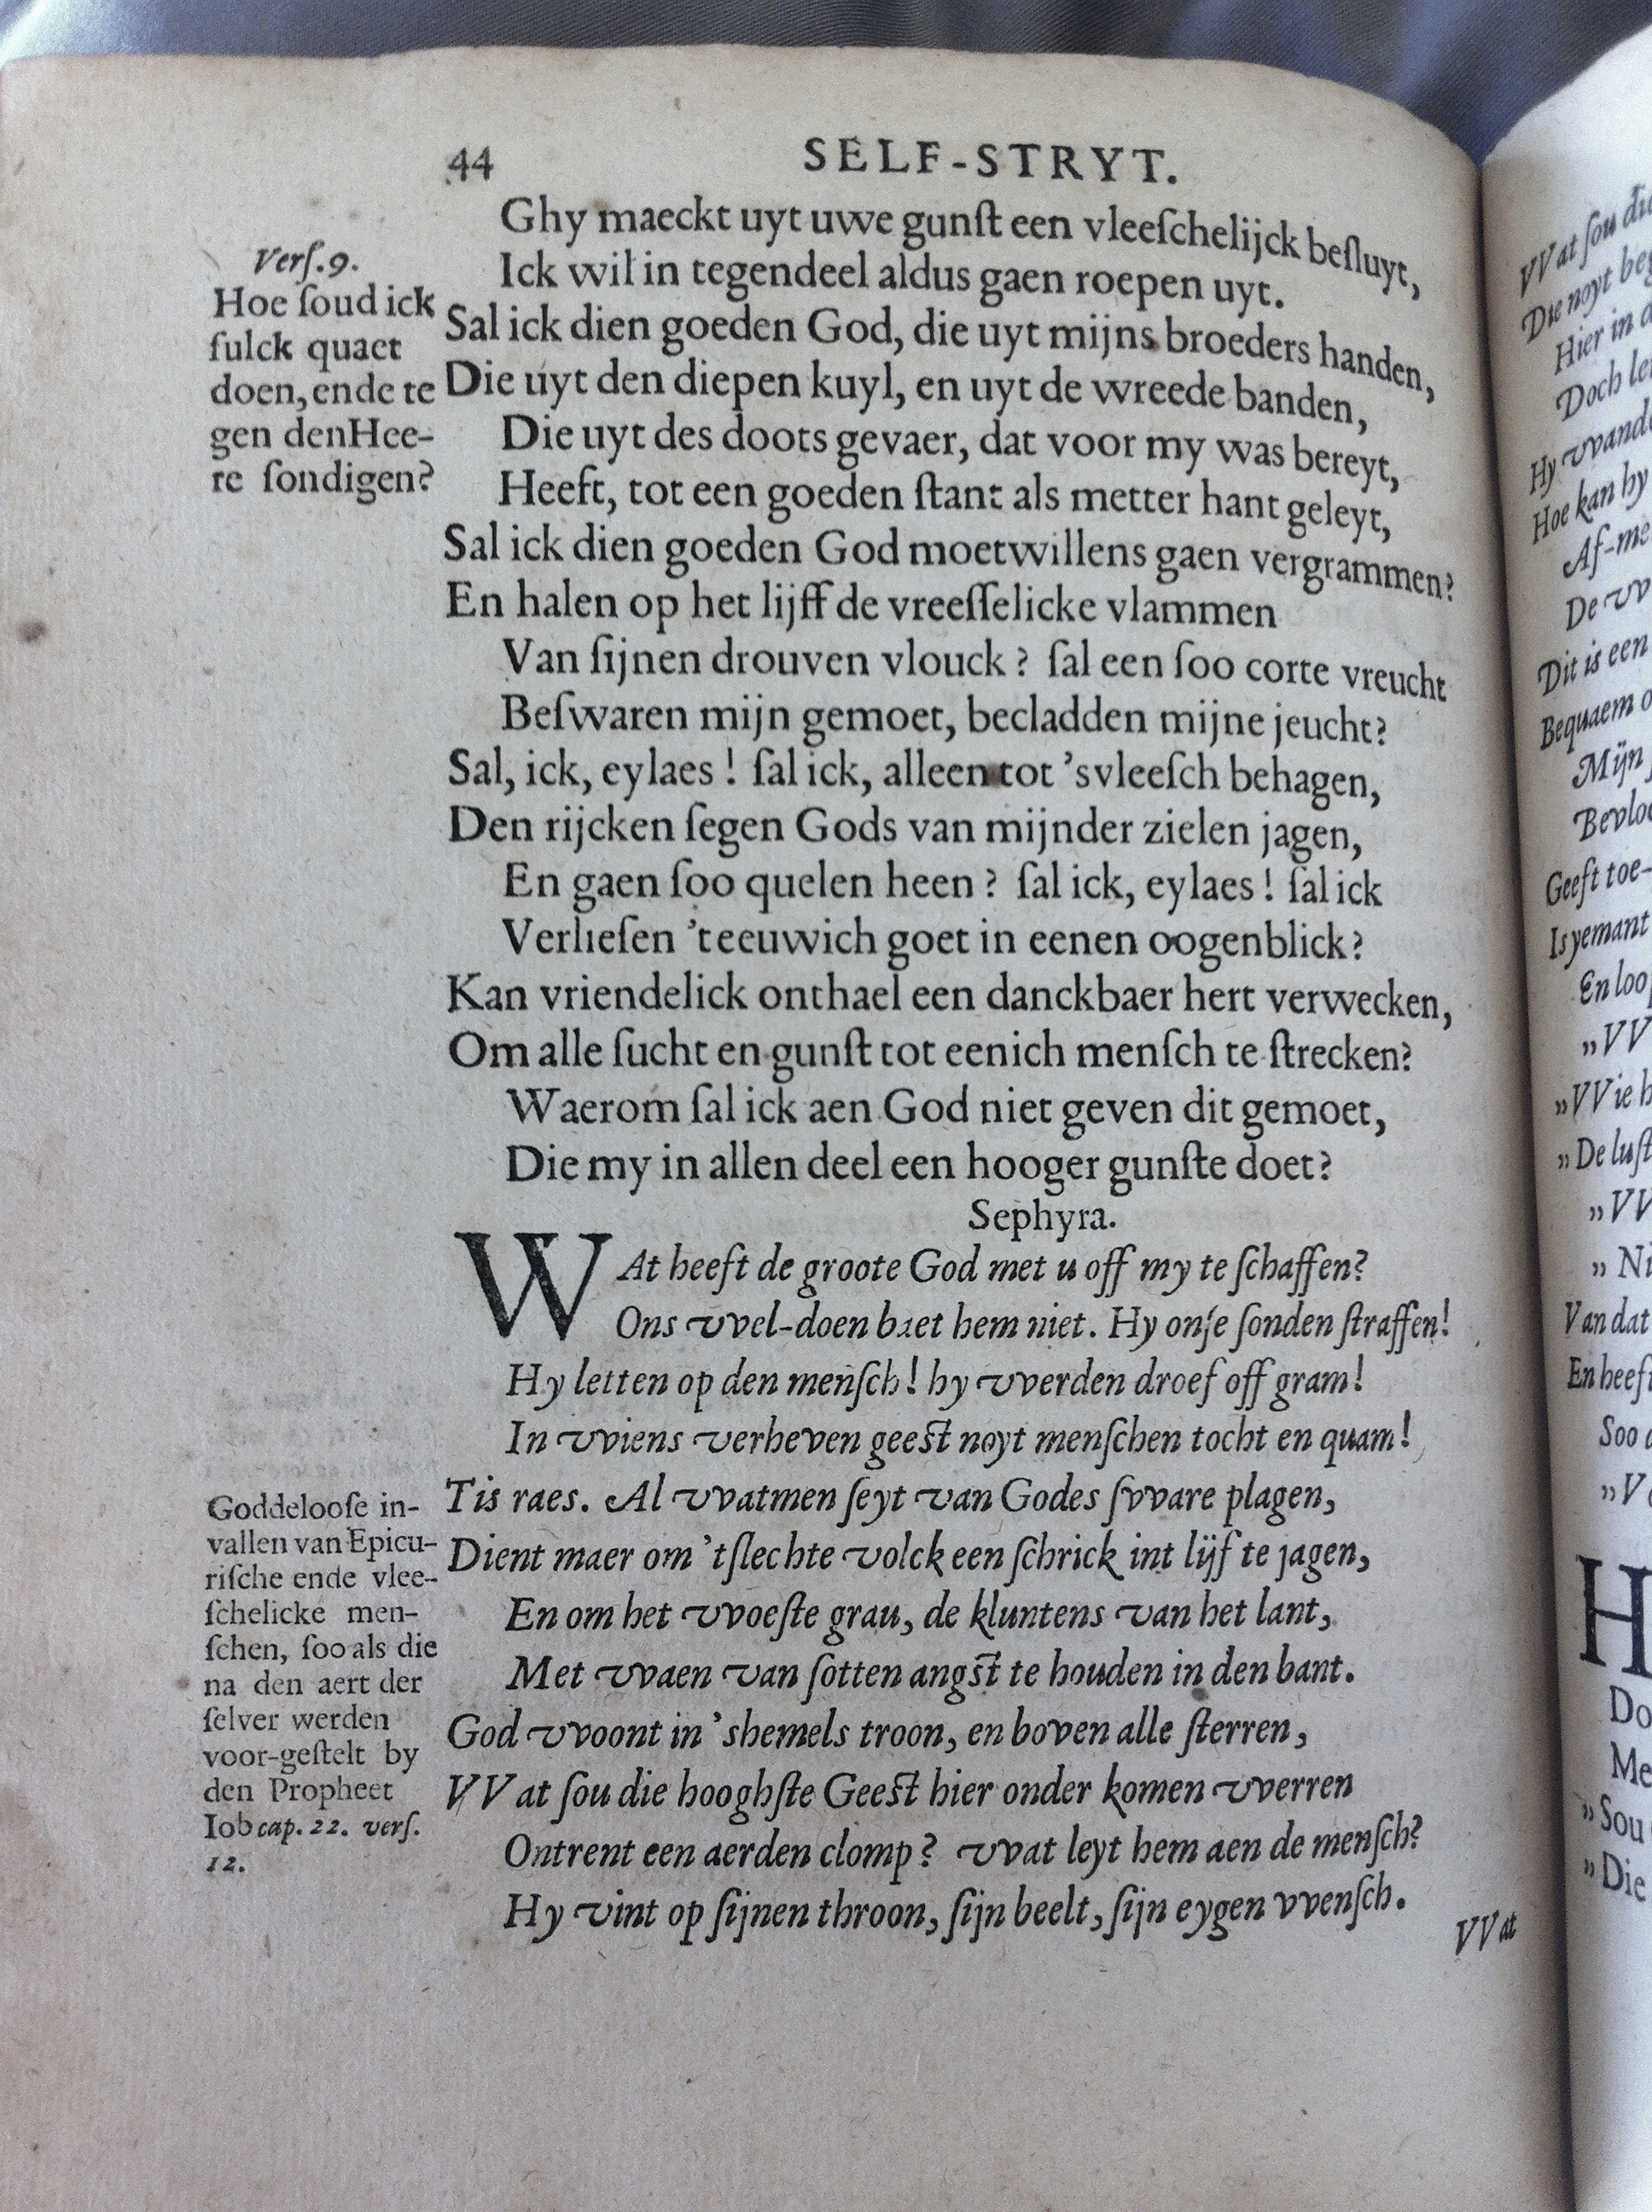 44
SELF-STRYT.
Ghy maeckt uyt uwe gunſt een vleeſchelijck beſluyt,
Ick wil in tegendeel aldus gaen roepen uyt.
Sal ick dien goeden God, die uyt mijns broeders handen,
Die uyt den diepen kuyl, en uyt de wreede banden,
Die uyt des doots gevaer, dat voor my was bereyt,
Heeft, tot een goeden ſtant als metter hant geleyt,
Sal ick dien goeden God moetwillens gaen vergrammen?
En halen op het lijff de vreeſſelicke vlammen
Van ſijnen drouven vlouck? ſal een ſoo corte vreucht
Beſwaren mijn gemoet, becladden mijne jeucht?
Sal, ick, eylaes! ſal ick, alleen tot 'svleeſch behagen,
Den rijcken ſegen Gods van mijnder zielen jagen,
En gaen ſoo quelen heen? ſal ick, eylaes! ſal ick
Verlieſen 'teeuwich goet in eenen oogenblick?
Kan vriendelick onthael een danckbaer hert verwecken,
Om alle ſucht en gunſt tot eenich menſch te ſtrecken?
Waerom ſal ick aen God niet geven dit gemoet,
Die my in allen deel een hooger gunſte doet?
Sephyra.
WAt heeft de groote God met u off my te ſchaffen?
Ons vvel-doen baet hem niet. Hy onſe ſonden ſtraffen!
Hy letten op den menſch! hy vverden droef off gram!
In vviens verheven geest noyt menſchen tocht en quam!
Tis raes. Al vvatmen ſeyt van Godes ſvvare plagen,
Dient maer om 'tſlechte volck een ſchrick int lijf te jagen,
En om het vvoeſte grau, de kluntens van het lant,
Met vvaen van ſotten angst te houden in den bant.
God vvoont in 'shemels troon, en boven alle ſterren,
VVat ſou die hooghſte Geest hier onder komen vverren
Ontrent een aerden clomp? vvat leyt hem aen de menſch?
Hy vint op ſijnen throon, ſijn beelt, ſijn eygen vvenſch.
VVat
Verſ. 9.
Hoe ſoud ick
ſulck quaet
doen, ende te
gen den Hee-
re ſondigen?
Goddelooſe in-
vallen van Epicu-
riſche ende vlee-
ſchelicke men-
ſchen, ſoo als die
na den aert der
ſelver werden
voor-geſtelt by
den Propheet
Iob cap. 22. verſ.
12.
VVat ſou
Die noyt
Hier in
Doch
Hy
Hoe kan hy
De
Dit is een
Bequaem
Mijn
Geeft toe-
Is yemant
En
„VVie
„De
Van dat
En
Soo
Do
Me
„Sou
„Die